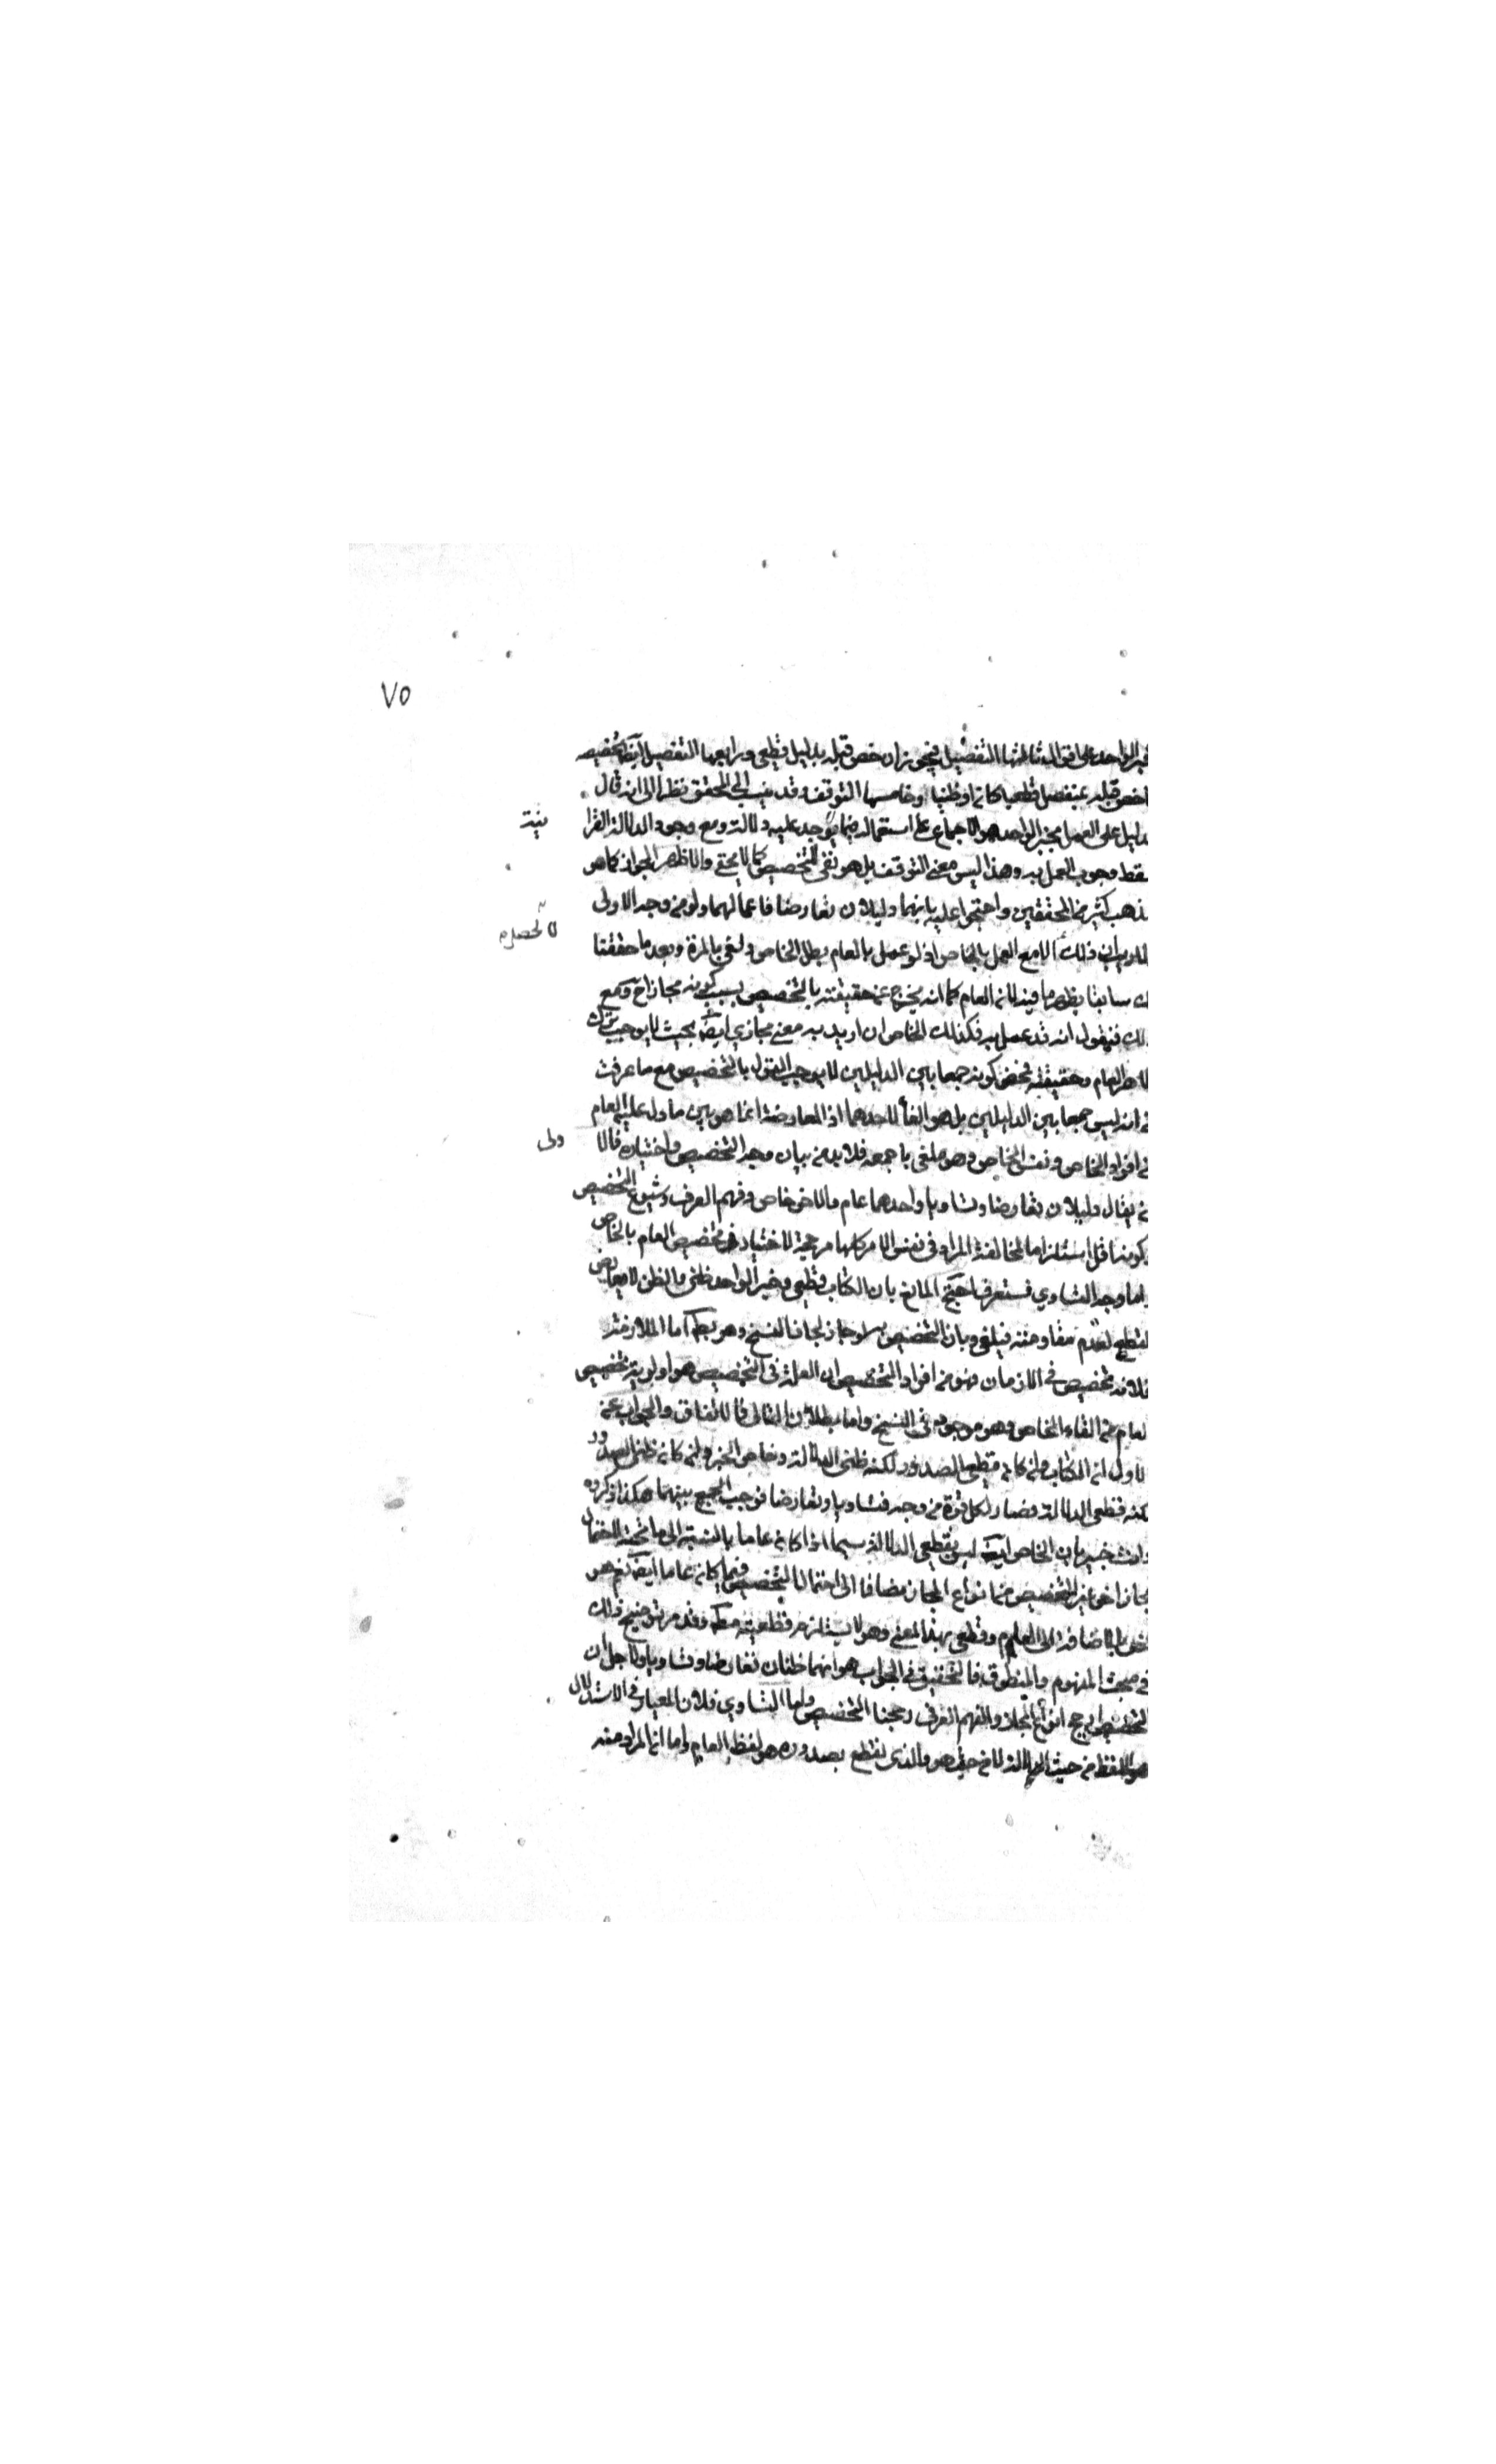 ٧٥
خبر الواحد على اقوال ثالثها التفصيل فيجوز ان خص قبله بدليل قطعي ورابعها التفصيل ايضا بتخصيصه
خص قبله بمنفصل قطعيا كان او ظنيا وخامسها التوقف وقد ينسب الى المحقق نظرا الى انه قال
دليل على العمل بخبر الواحد هو الاجماع على استعماله فيما لا يوجد عليه دلالة ومع وجود الدلالة القرا
نية
سقط وجوب العمل به وهذا ليس معنى التوقف بل هو نفي التخصيص كما لا يخفى والاظهر الجواز كما هو
مذهب اكثر المحققين واحتجوا عليه بانهما دليلان تعارضا فاعمالهما ولو من وجه اولى
لا تحصل
ولاريب ان ذلك الا مع العمل بالخاص اذ لو عمل بالعام بطل الخاص ولغى بالمرة وبعد ما حققنا
لك سابقا يظهر ما فيه لان العام كما انه يخرج عن حقيقته بالتخصيص بسبب كونه مجازا ومع
ذلك فنقول انه قد عمل به فكذلك الخاص ان اريد به معنى مجازي ايضا بحيث لا يوجب ترك
ظاهر العام وحقيقته فمحض كونه جمعا بين الدليلين لا يوجب القول بالتخصيص مع ما عرفت
من انه ليس جمعا بين الدليلين بل هو الغاء لاحدهما اذ المعارضة انما هو بين ما دل عليه العام
من افراد الخاص ونفس الخاص وهو ملغى باجمعه فلابد من بيان وجه التخصيص واختياره فالا
ولى
ان يقال دليلان تعارضا وتساويا واحدهما عام والاخر خاص وفهم العرف وشيوع التخصيص
وكونه اقل استلزاما لمخالفة المراد في نفس الامر كلها مرجحة لاختيار تخصيص العام بالخاص
واما وجه التساوي فستعرف احتج المانع بان الكتاب قطعي وخبر الواحد ظني والظن لا يعارض
القطع لعدم مقاومته فيلغى وبان التخصيص به لو جاز لجاز النسخ وهو بط اما الملازمة
فلانه تخصيص في الازمان فهو من افراد التخصيص او العلة في التخصيص هو اولوية تخصيص
العام من الغاء الخاص وهو موجود في النسخ واما بطلان التالي فبالاتفاق والجواب عن
الاول ان الكتاب وان كان قطعي الصدور لكنه ظني الدلالة وخاص الخبر وان كان ظني الصدور
لكنه قطعي الدلالة فصار لكل قوة من وجه فتساويا وتعارضا فوجب الجمع بينهما هكذا ذكروه
وانت خبير بان الخاص ايضا ليس بقطعي الدلالة سيما اذا كان عاما بالنسبة الى ما تحته لاحتمال
مجاز اخر غير التخصيص من انواع المجاز مضافا الى احتمال التخصيص فيما كان عاما ايضا نعم هو
نص بالاضافة الى العام وقطعي بهذا المعنى وهو لا يستلزم قطعيته مط وقد مر توضيح ذلك
في مبحث المفهوم والمنطوق فالتحقيق في الجواب هو انهما ظنان تعارضا وتساويا ولاجل ان
التخصيص ارجح انواع المجاز والفهم العرفي رجحنا التخصيص واما التساوي فلان المعيار في الاستدلال
هو اللفظ من حيث الدلالة لا من حيث هو والذي نقطع بصدوره هو لفظ العام واما ان المراد منه